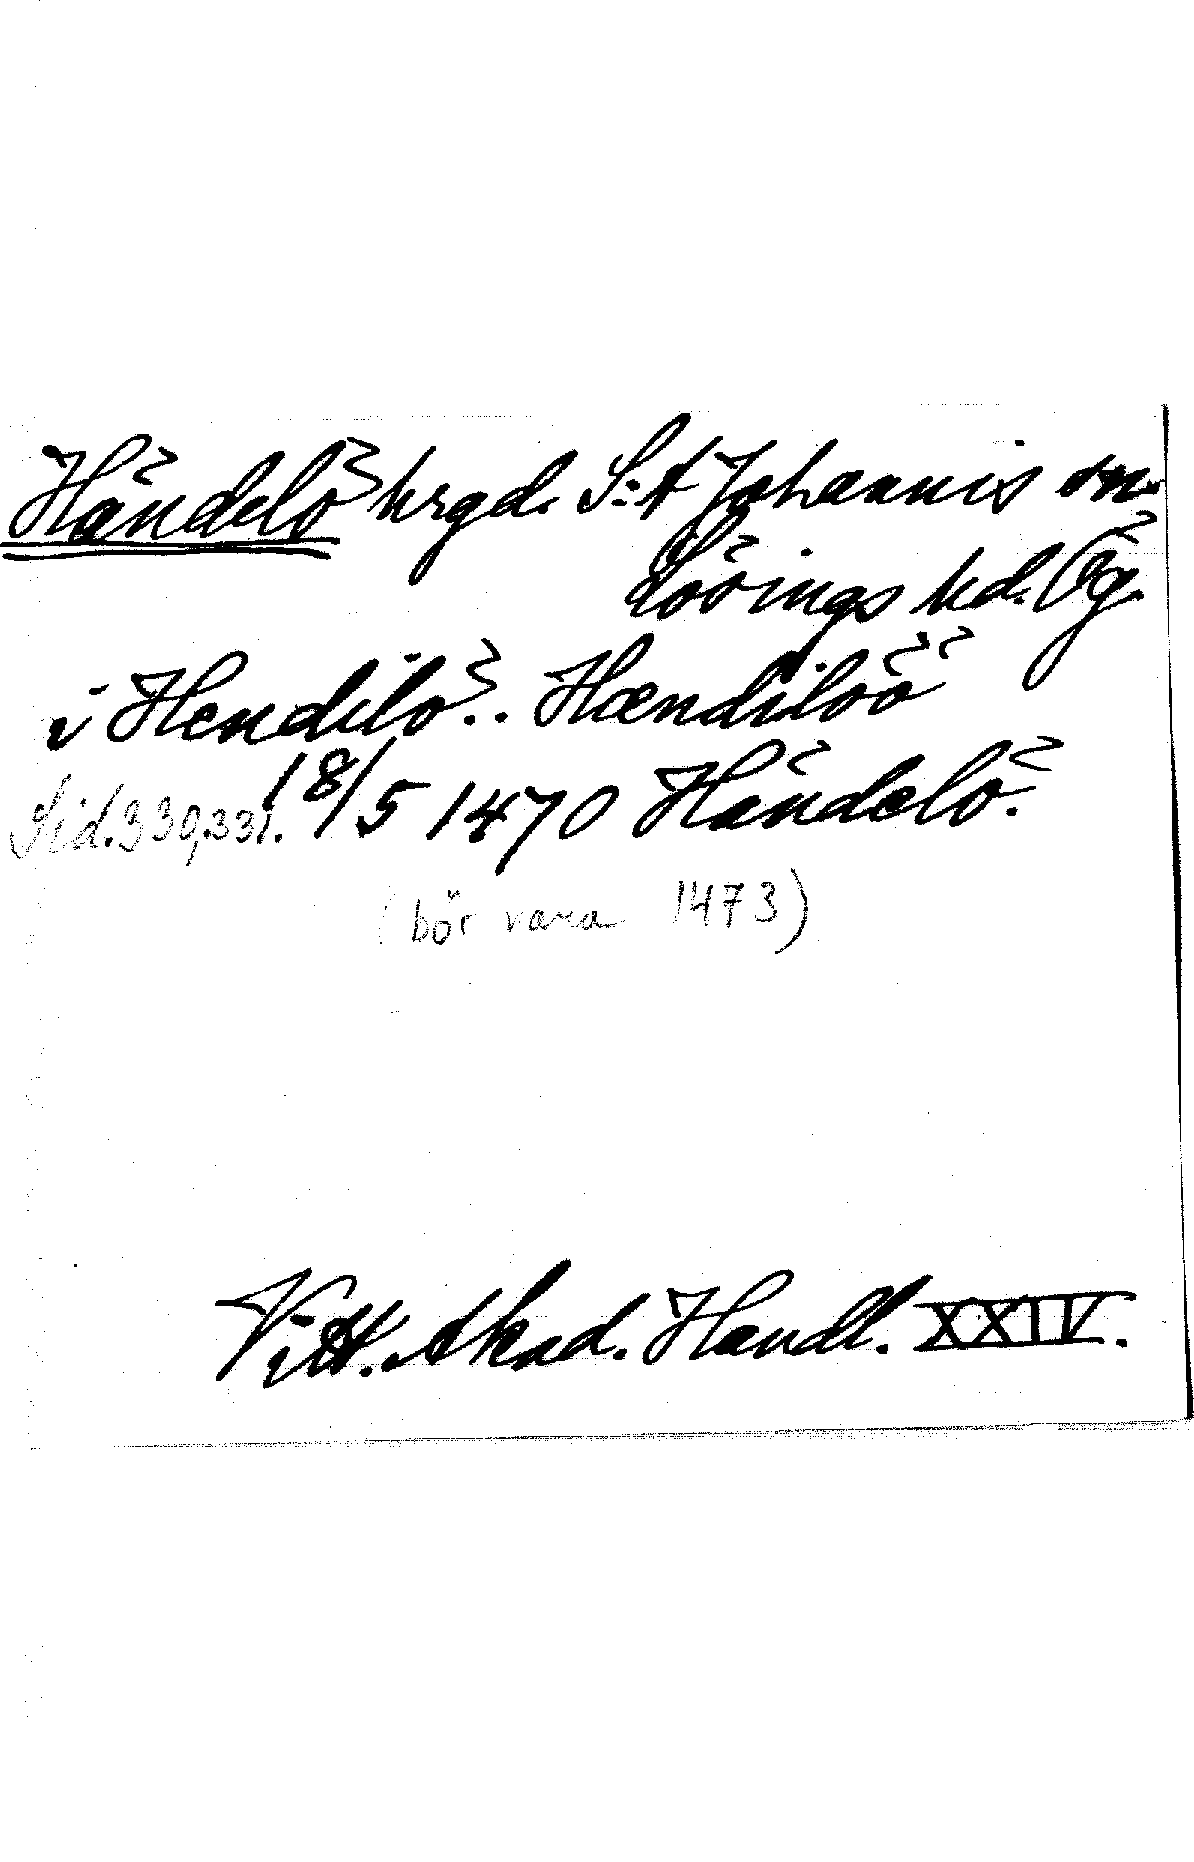 Händelö hrgd. S:t Johannis sn.
Lösings hd. Ög.
i Hendilö.. Hændilöö
Sid. 330,331. 18/5 1470 Händelö.
(bör vara 1473)
Vitt. Akad. Handl. XXIV.